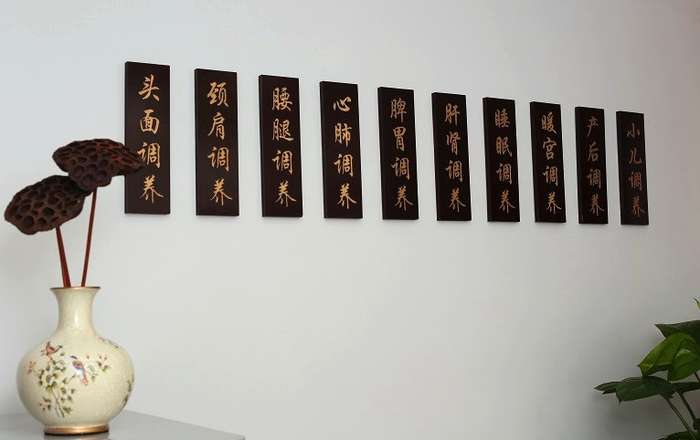 头面调养
颈肩调养
腰腿调养
心肺调养
脾胃调养
肝肾调养
睡眠调养
暖宫调养
产后调养
小儿调养